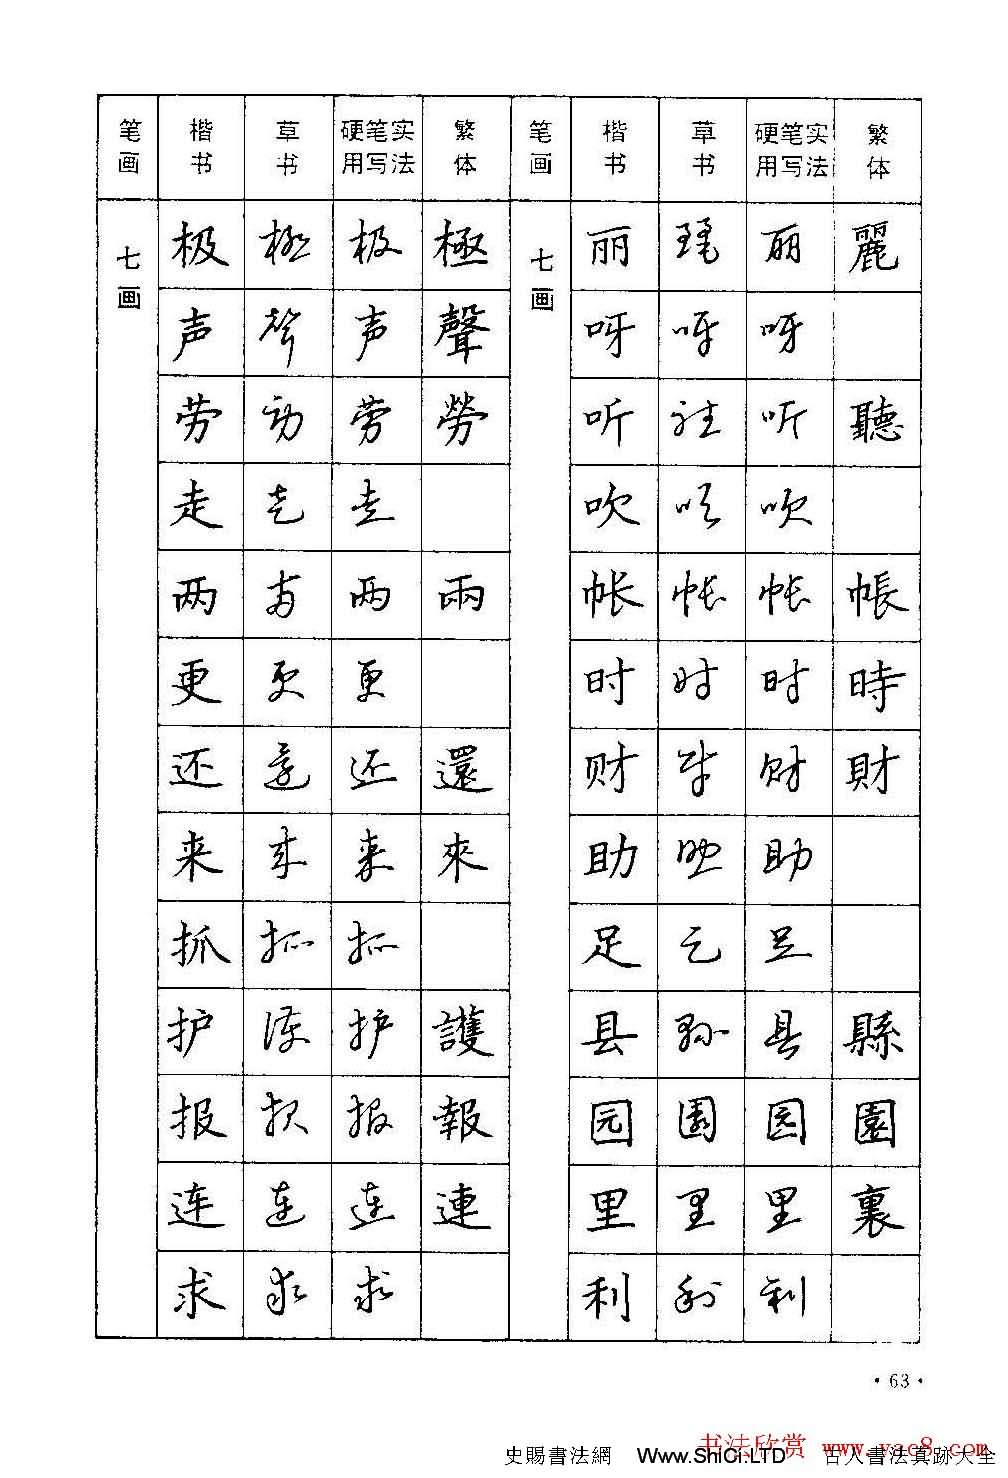 笔画 楷书 草书 硬笔实用写法 繁体 笔画 楷书 草书 硬笔实用写法 繁体
七画 极 極 极 極 七画 丽 麗 丽 麗
声 聲 声 聲 呀 呀 呀
劳 勞 劳 勞 听 聽 听 聽
走 走 走 吹 吹 吹
两 兩 两 兩 帐 帳 帐 帳
更 更 更 时 時 时 時
还 還 还 還 财 財 财 財
来 來 来 來 助 助 助
抓 抓 抓 足 足 足
护 護 护 護 县 縣 县 縣
报 報 报 報 园 園 园 園
连 連 连 連 里 里 里 裏
求 求 求 利 利 利
·63·
书法欣赏 www.yac8.com
史賜書法網 Www.ShiCi.LTD 古人書法真跡大全